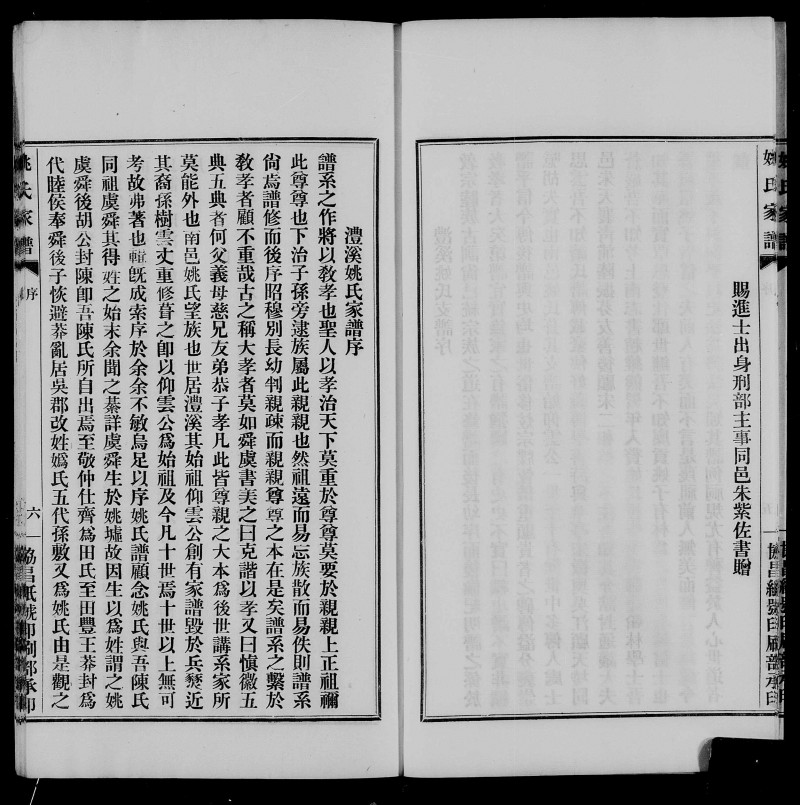 姚氏家譜
賜進士出身刑部主事同邑朱紫佐書贈
澧溪姚氏家譜序
譜系之作將以敎孝也聖人以孝治天下莫重於尊尊莫要於親親上正祖禰
此尊尊也下治子孫旁逮族屬此親親也然祖遠而易忘族散而易佚則譜系
尙焉譜修而後序昭穆別長幼判親疎而親親尊尊之本在是矣譜系之繫於
敎孝者顧不重哉古之稱大孝者莫如舜虞書美之曰克諧以孝又曰愼徽五
典五典者何父義母慈兄友弟恭子孝凡此皆尊親之大本爲後世講系家所
莫能外也南邑姚氏望族也世居澧溪其始祖仰雲公創有家譜毀於兵燹近
其裔孫樹雲丈重修葺之卽以仰雲公爲始祖及今凡十世焉十世以上無可
考故弗著也輯旣成索序於余余不敏烏足以序姚氏譜顧念姚氏與吾陳氏
同祖虞舜其得姓之始末余聞之綦詳虞舜生於姚墟故因生以爲姓謂之姚
虞舜後胡公封陳卽吾陳氏所自出焉至敬仲仕齊爲田氏至田豐王莽封爲
代睦侯奉舜後子恢避莽亂居吳郡改姓嬀氏五代孫敷又爲姚氏由是觀之
姚氏家譜
序
六
協昌紙號印刷部承印